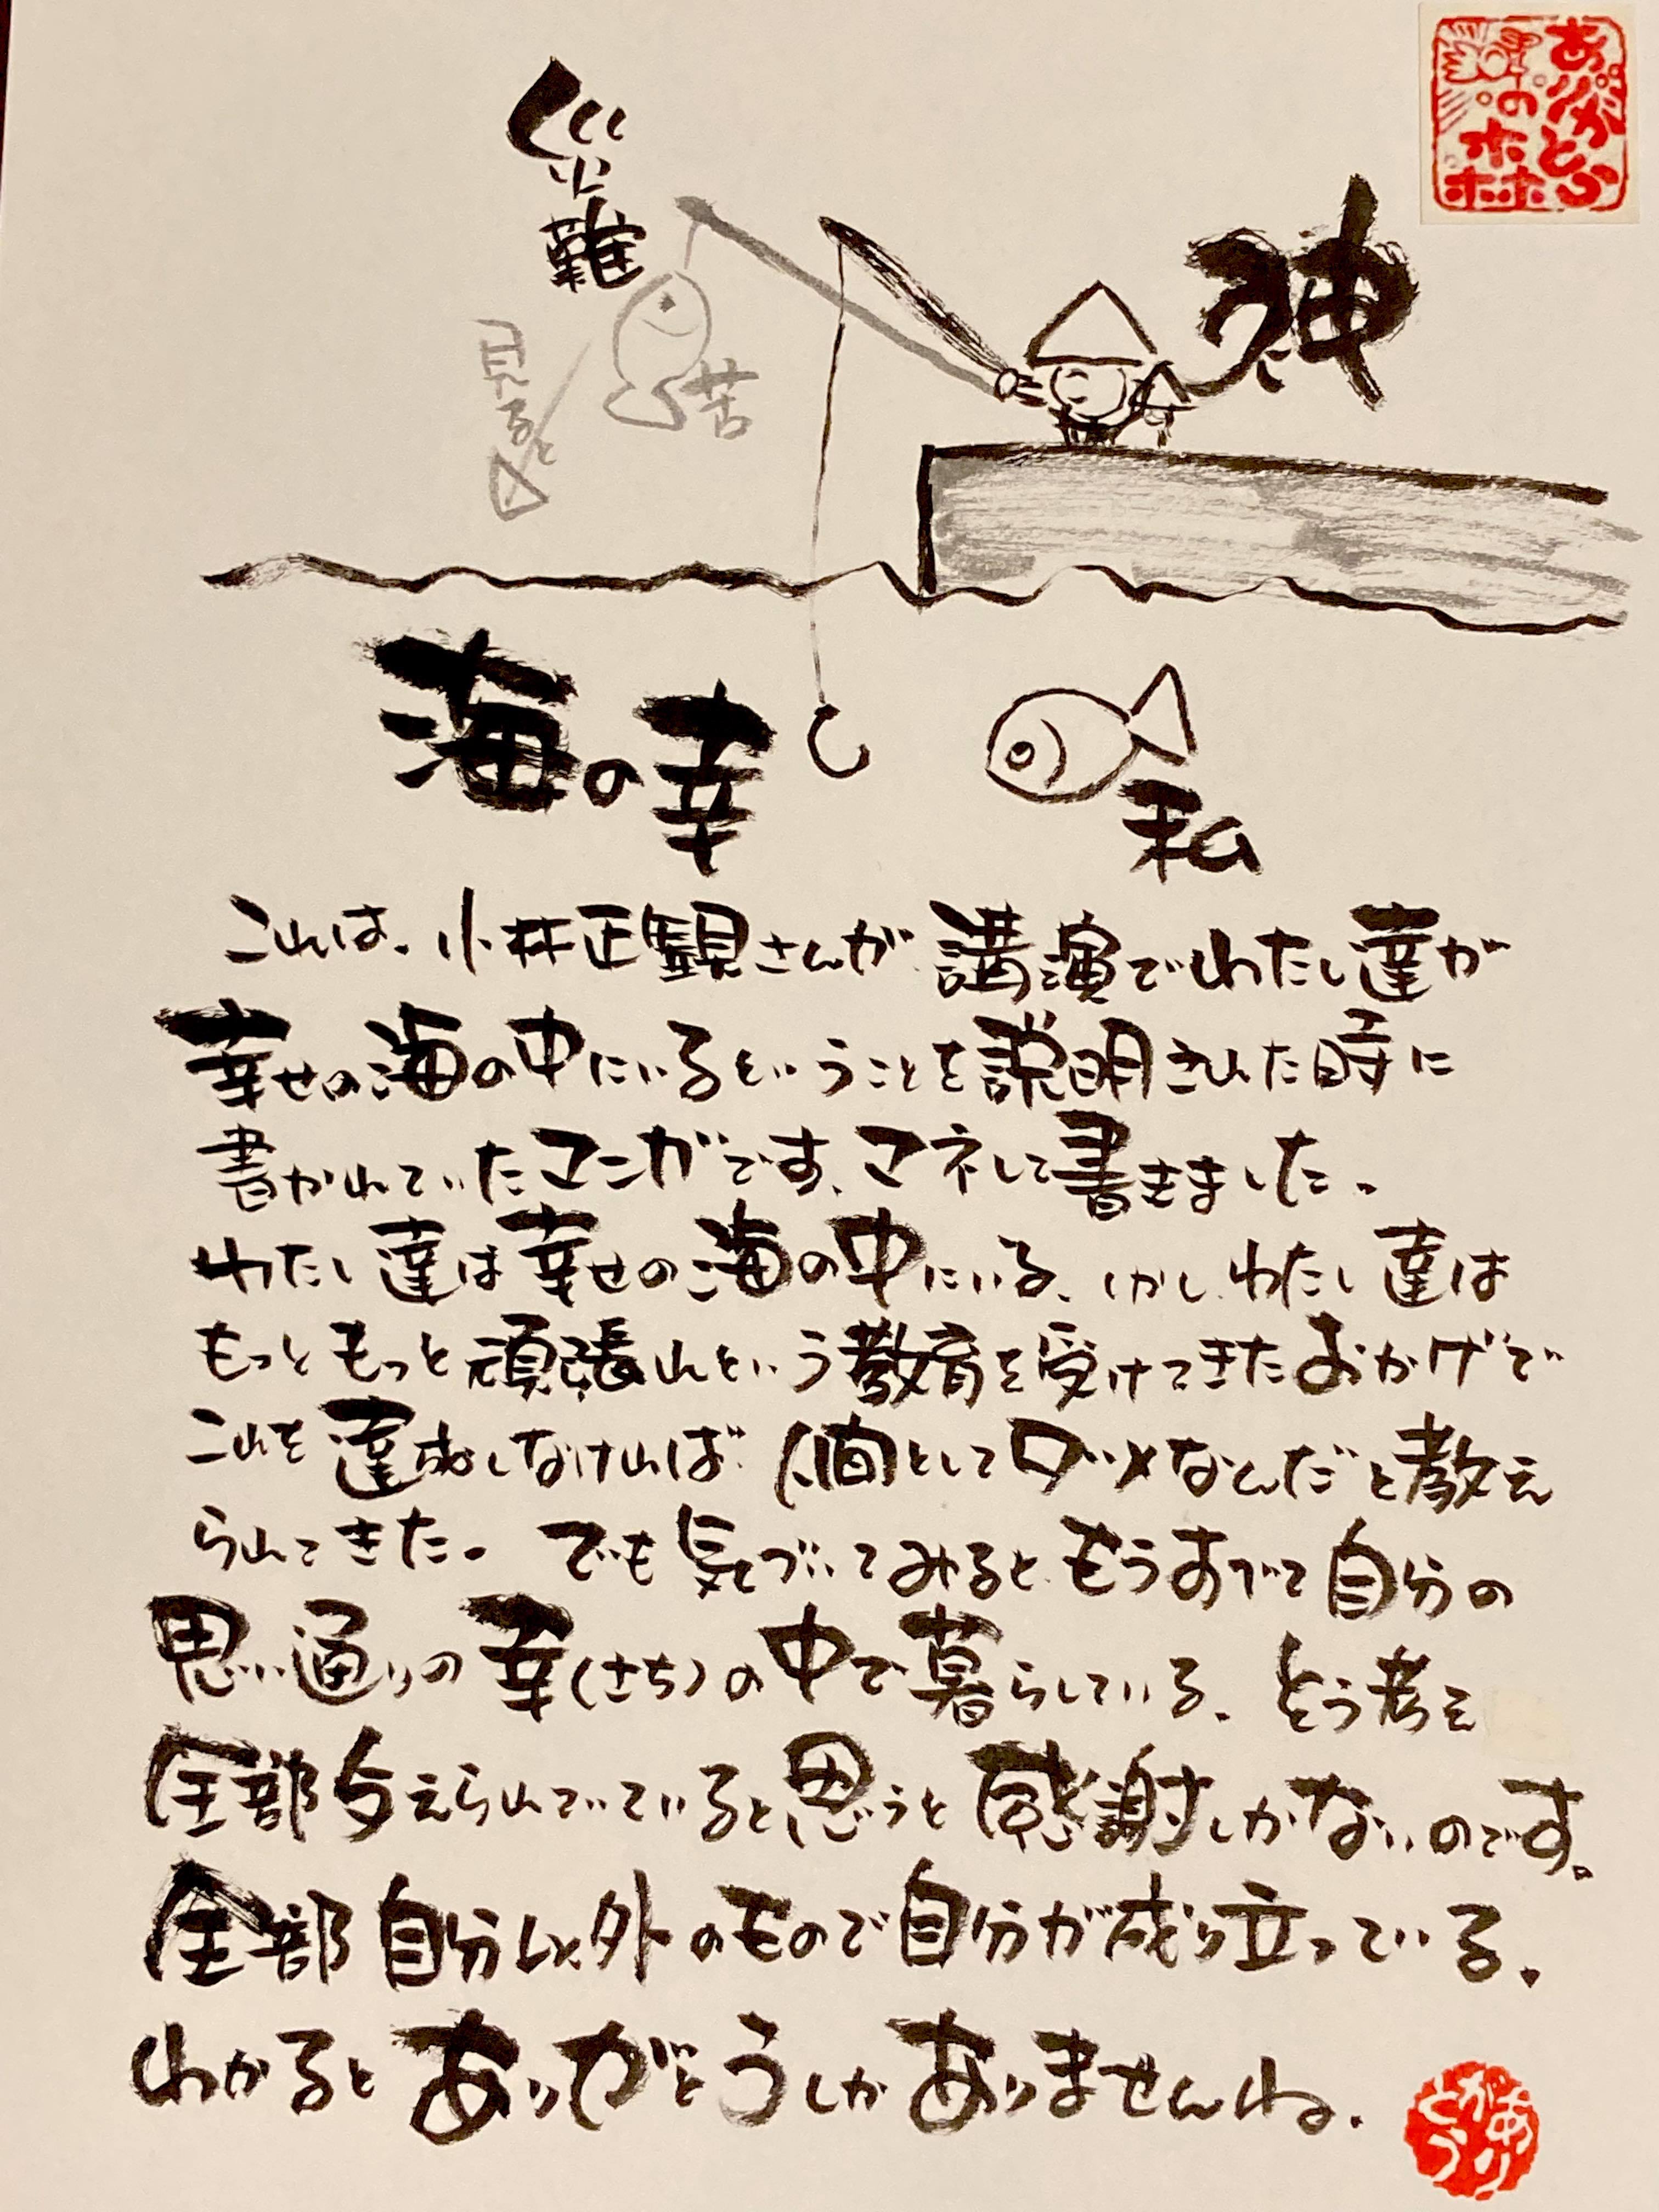 ありがとう
の森
災難
神
苦
見ると
海の幸
私
これは、小林正観さんが講演でわたし達が
幸せの海の中にいるということを説明された時に
書かれていたマンガです、マネして書きました。
わたし達は幸せの海の中にいる、しかしわたし達は
もっともっと頑張れという教育を受けてきたおかげで
これを達成しなければ人間としてダメなんだと教え
られてきた。でも気づいてみるともうすべて自分の
思い通りの幸(さち)の中で暮らしている。そう考え
全部与えられていていると思うと感謝しかないのです。
全部自分以外のもので自分が成り立っている。
わかるとありがとうしかありませんね。
ありがとう